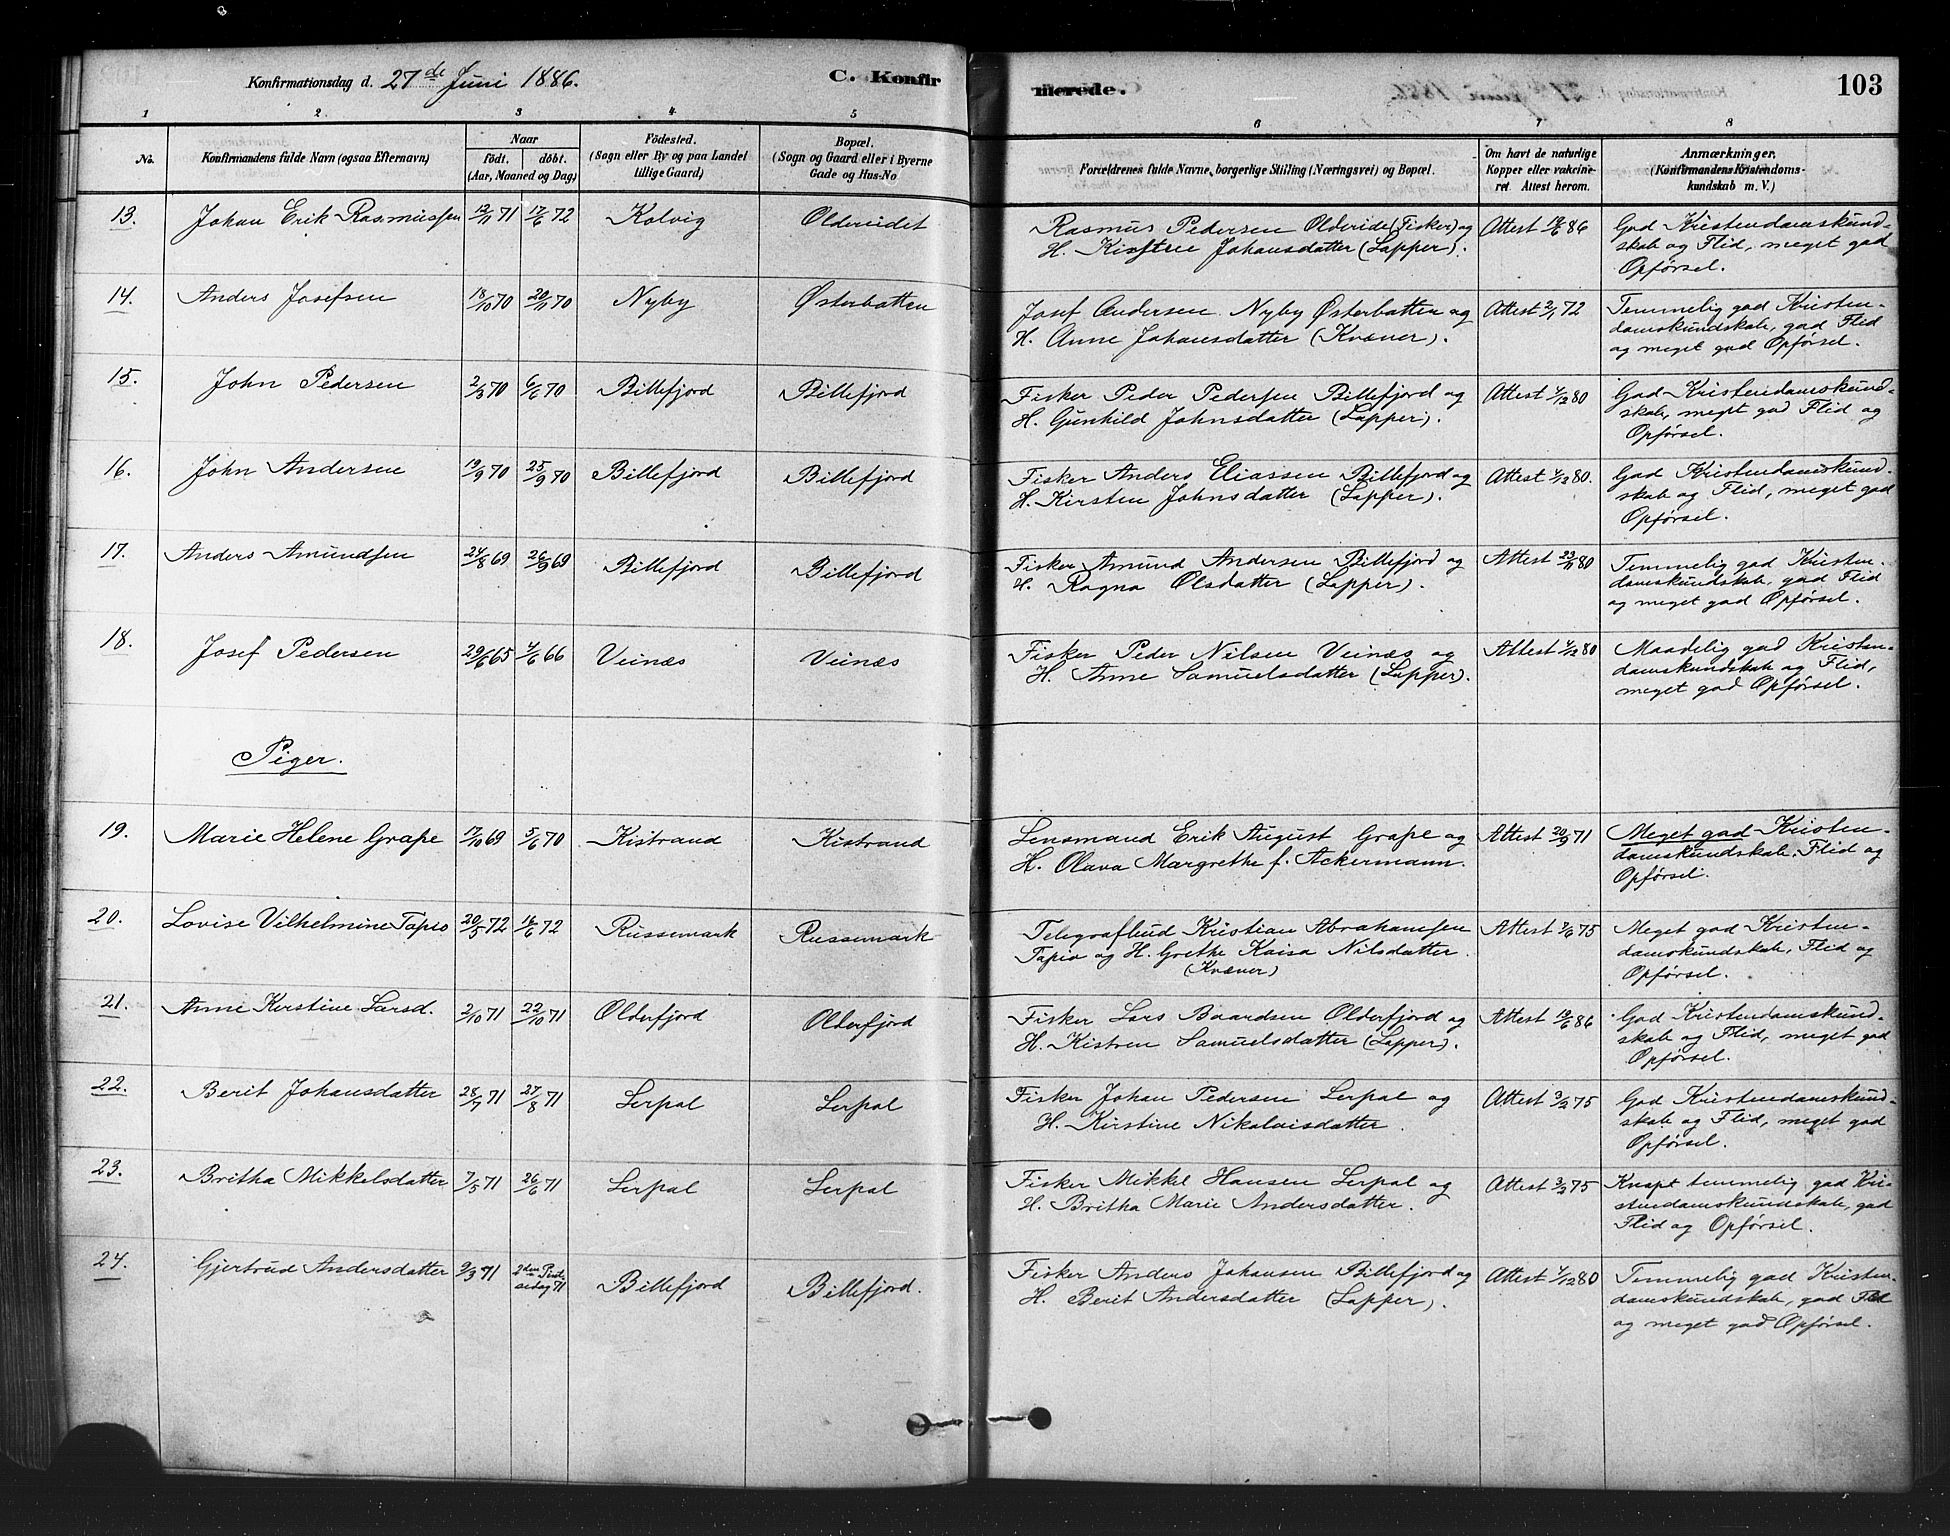 Konfirmationsdag d. 27de Juni 1886. C. Konfirmerede. 103
1 2 3 4 5 6 7 8
No. Konfirmandens fulde Navn (ogsaa Efternavn) Naar født. døbt. (Aar, Maaned og Dag) Fødested. (Sogn eller By og paa Landet tillige Gaard) Bopæl. (Sogn og Gaard eller i Byerne Gade og Hus-No Forældrenes fulde Navne, borgerlige Stilling (Næringsvei) og Bopæl. Om havt de naturlige Kopper eller vakcineret. Attest herom. Anmærkninger. (Konfirmandens Kristendomskundskab m. V.)
13. Johan Erik Rasmussen 12/11 71 17/6 72 Kolvig Oldereidet Rasmus Pedersen Oldereide (Fisker) og Attest 19/6 86 God Kristendomskund-
H. Kirstine Johansdatter (Lapper). skab og Flid, meget god
Opførsel.
14. Anders Josefsen 18/10 70 20/11 70 Nyby Østerbotten Josef Andersen Nyby Østerbotten og Attest 2/1 72 Temmelig god Kristen-
H. Anne Johansdatter (Kvæner). domskundskab, god Flid
og meget god Opførsel.
15. John Pedersen 2/3 70 6/6 70 Billefjord Billefjord Fisker Peder Pedersen Billefjord og Attest 4/12 80 God Kristendomskund-
H. Gunhild Johnsdatter (Lapper). skab, meget god Flid og
Opførsel.
16. John Andersen 19/9 70 25/9 70 Billefjord Billefjord Fisker Anders Eliassen Billefjord og Attest 4/12 80. God Kristendomskund-
H. Kirsten Johnsdatter (Lapper). skab og Flid, meget god
Opførsel.
17. Anders Amundsen 24/8 69 26/9 69 Billefjord Billefjord Fisker Amund Andersen Billefjord og Attest 23/11 80 Temmelig god Kristen-
H. Ragna Olsdatter (Lapper). domskundskab, god Flid
og meget god Opførsel.
18. Josef Pedersen 29/6 65 4/6 66 Veinæs Veinæs Fisker Peder Nilsen Veinæs og Attest 4/12 80 Maadelig god Kristen-
H. Anne Samuelsdatter (Lapper). domskundskab og Flid,
meget god Opførsel.
Piger.
19. Marie Helene Grape 17/10 69 5/6 70 Kistrand Kistrand Lensmand Erik August Grape og Attest 20/9 71 Meget god Kristen-
H. Olava Margrethe f. Ackermann. domskundskab, Flid og
Opførsel.
20. Lovise Vilhelmine Tapio 20/5 72 16/6 72 Russemark Russemark Telegrafbud Kristian Abrahamsen Attest 7/6 75 Meget god Kristen-
Tapio og H. Grethe Kaisa Nilsdatter. domskundskab, Flid og
(Kvæner) Opførsel.
21. Anne Kirstine Larsd. 2/10 71 22/10 71 Olderfjord Olderfjord Fisker Lars Baardsen Olderfjord og Attest 19/6 86 God Kristendomskund-
H. Kistren Samuelsdatter (Lapper). skab og Flid, meget god
Opførsel.
22. Berit Johansdatter 28/7 71 27/8 71 Lerpol Lerpol Fisker Johan Pedersen Lerpol og Attest 3/2 75 God Kristendomskund-
H. Kirstine Nikolaisdatter. skab og Flid, meget god
Opførsel.
23. Britha Mikkelsdatter 7/5 71 26/6 71 Lerpol Lerpol Fisker Mikkel Hansen Lerpol og Attest 3/2 75 Knapt temmelig god Kri-
H. Britha Marie Andersdatter. stendomskundskab, god
Flid og Opførsel.
24. Gjertrud Andersdatter 9/3 71 2den Pint- Billefjord Billefjord. Fisker Anders Johansen Billefjord og Attest 4/12 80 Temmelig god Kristen-
sedag 71 H. Berit Andersdatter (Lapper). domskundskab, god Flid
og meget god Opførsel.